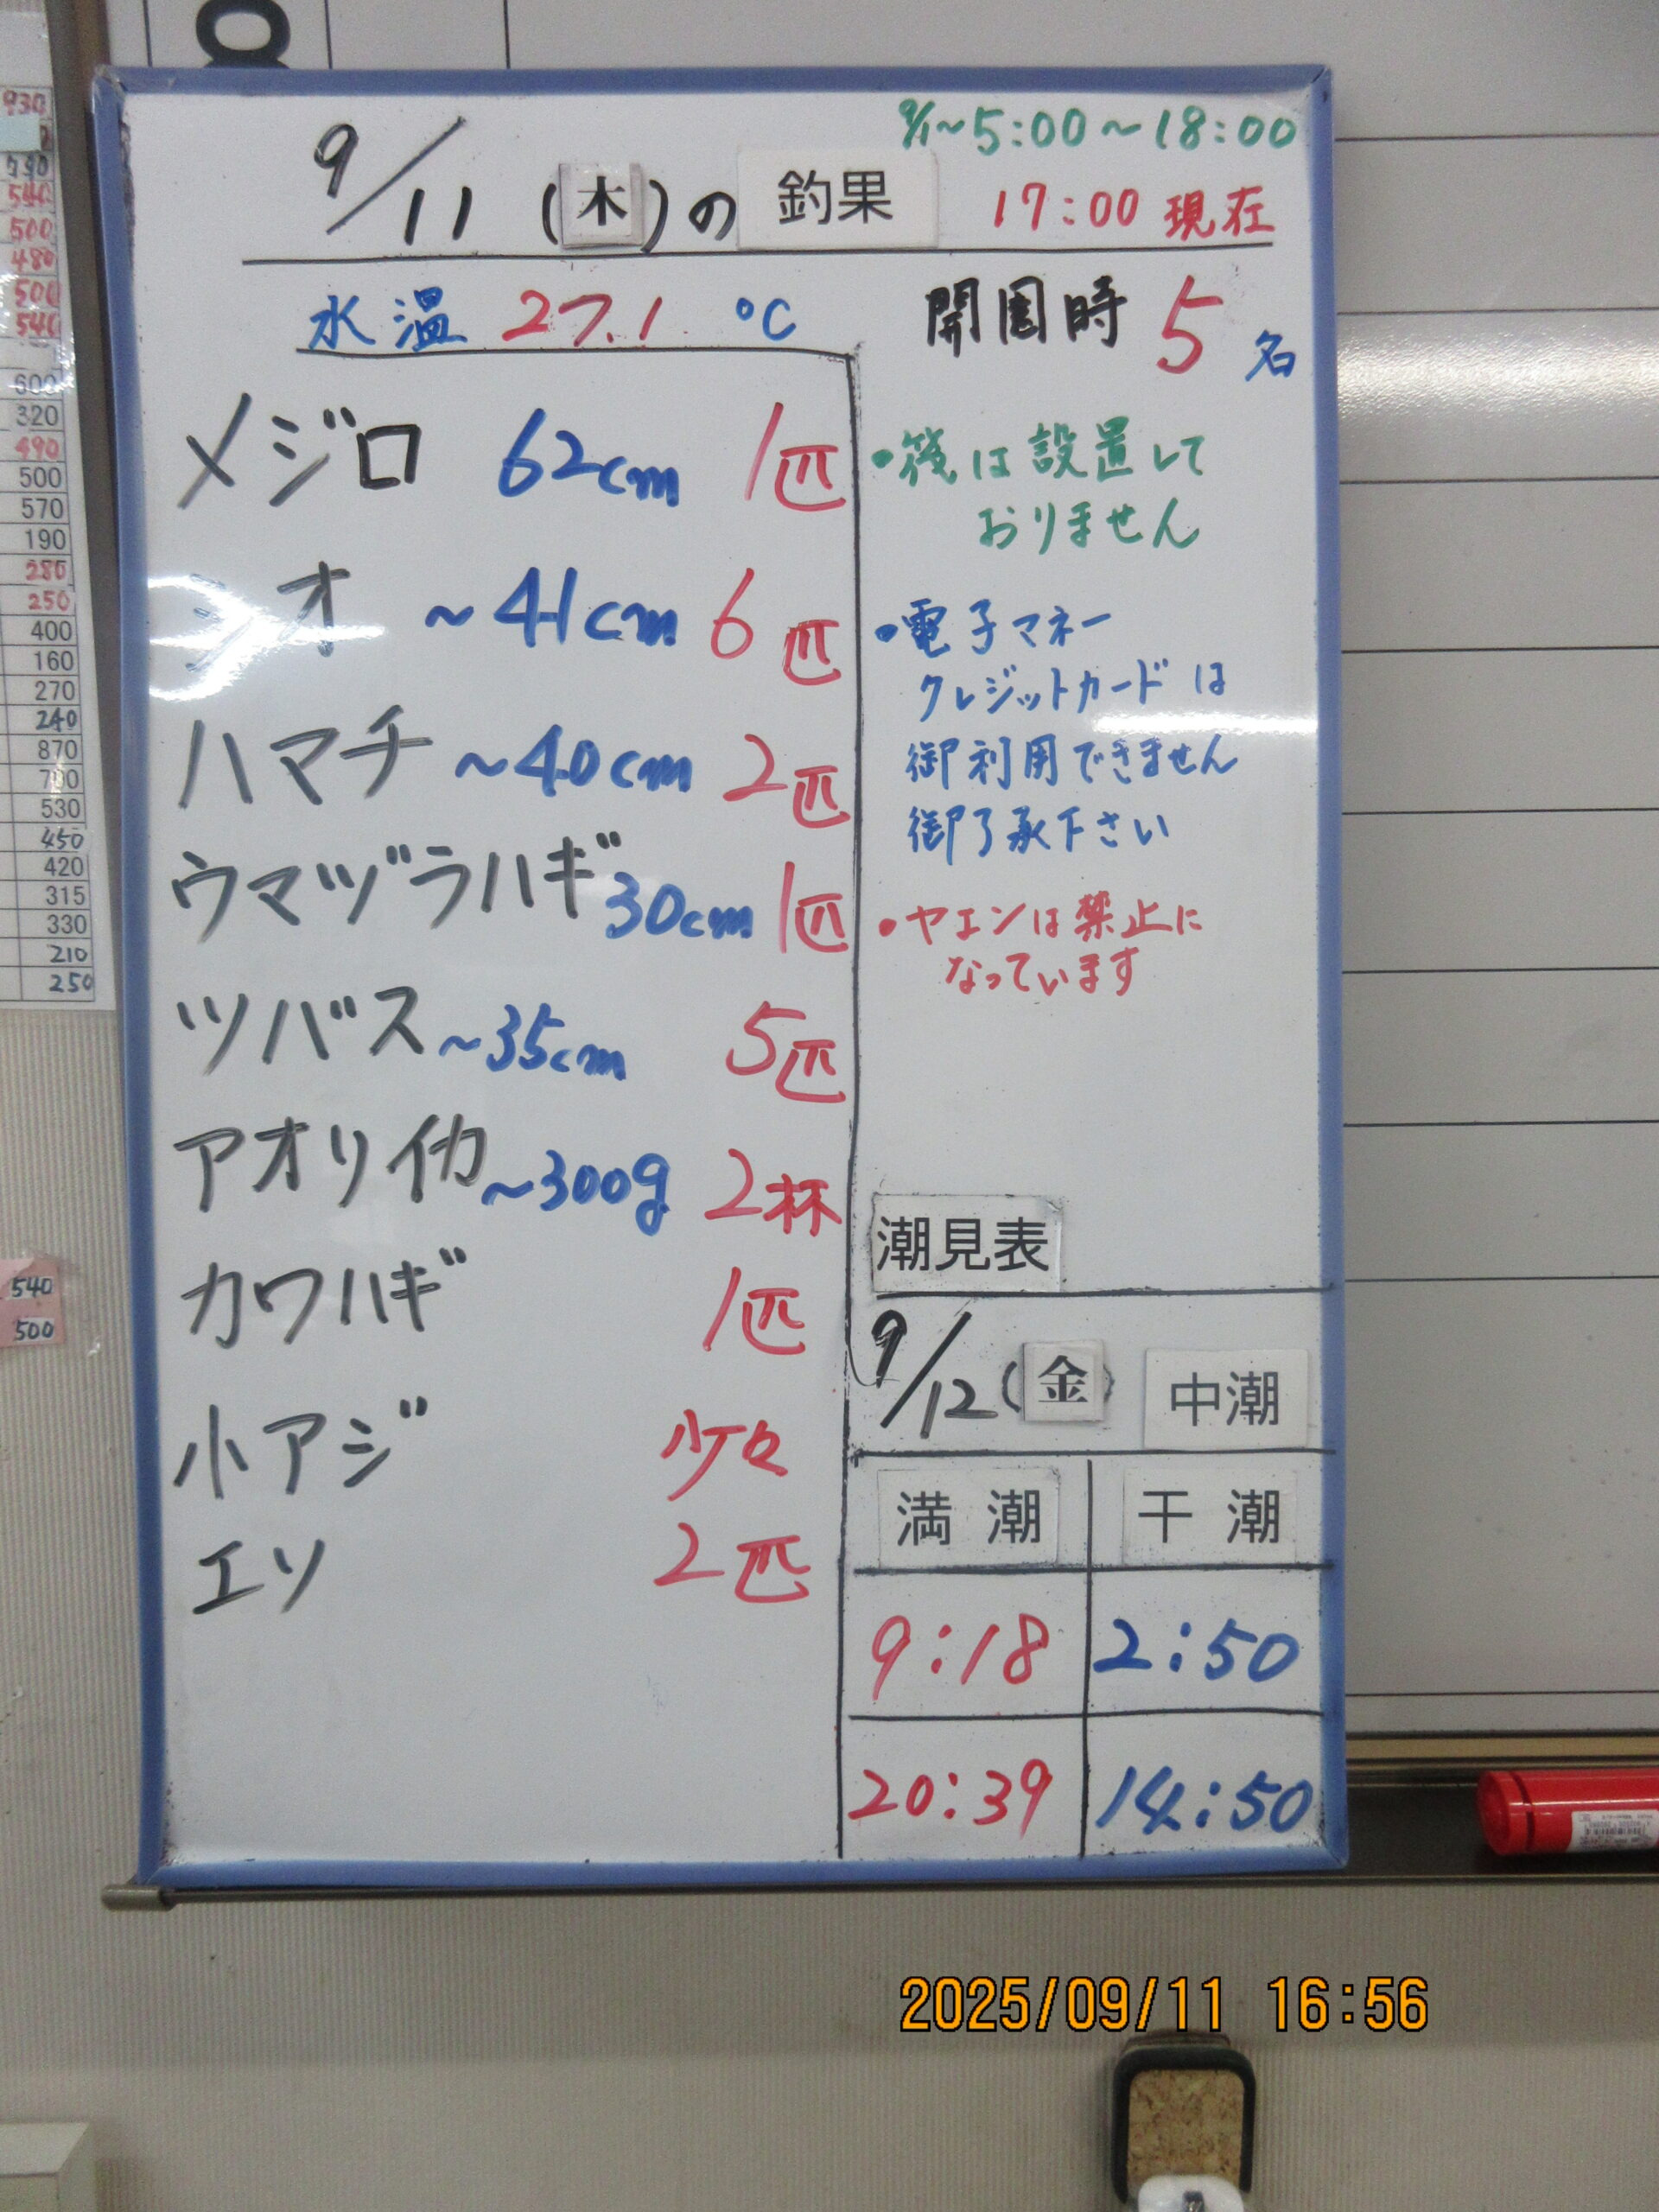 9/1~5:00~18:00
9/11(木)の 釣果 17:00 現在
水温 27.1 ℃
開園時 5名
メジロ 62cm 1匹
シオ ~41cm 6匹
ハマチ ~40cm 2匹
ウマヅラハギ 30cm 1匹
ツバス ~35cm 5匹
アオリイカ ~300g 2杯
カワハギ 1匹
小アジ 少々
エソ 2匹
・筏は設置して
おりません
・電子マネー
クレジットカードは
御利用できません
御了承下さい
・ヤエンは禁止に
なっています
潮見表
9/12(金) 中潮
満潮 干潮
9:18 2:50
20:39 14:50
930
540
500
480
500
540
600
320
490
500
570
190
280
250
400
160
270
240
870
530
450
420
315
330
210
250
540
500
2025/09/11 16:56